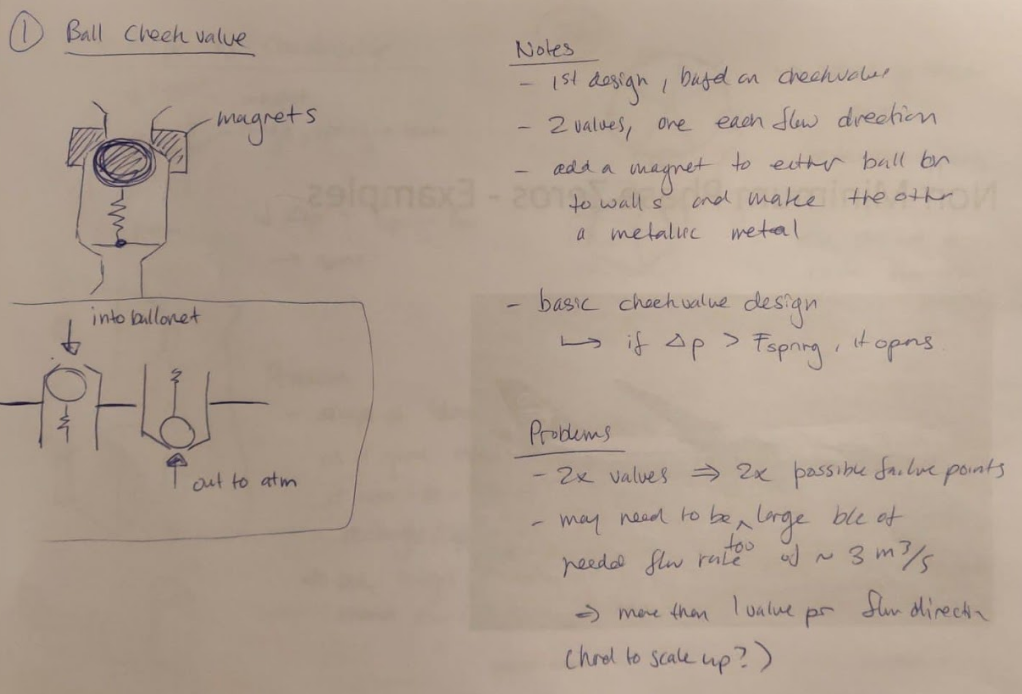 ① Ball Check valve
magnets
into ballonet
out to atm
Notes
- 1st design, based on checkvalve
- 2 valves, one each flow direction
- add a magnet to either ball or
to walls and make the other
a metallic metal
- basic checkvalve design
↳ if Δp > Fspring, it opens.
Problems
- 2x valves ⇒ 2x possible failure points
- may need to be too large b/c of
needed flow rate of ~ 3 m³/s
⇒ more than 1 valve per flow direction
(hard to scale up?)
Non-Minimum Phase Zeros - Examples